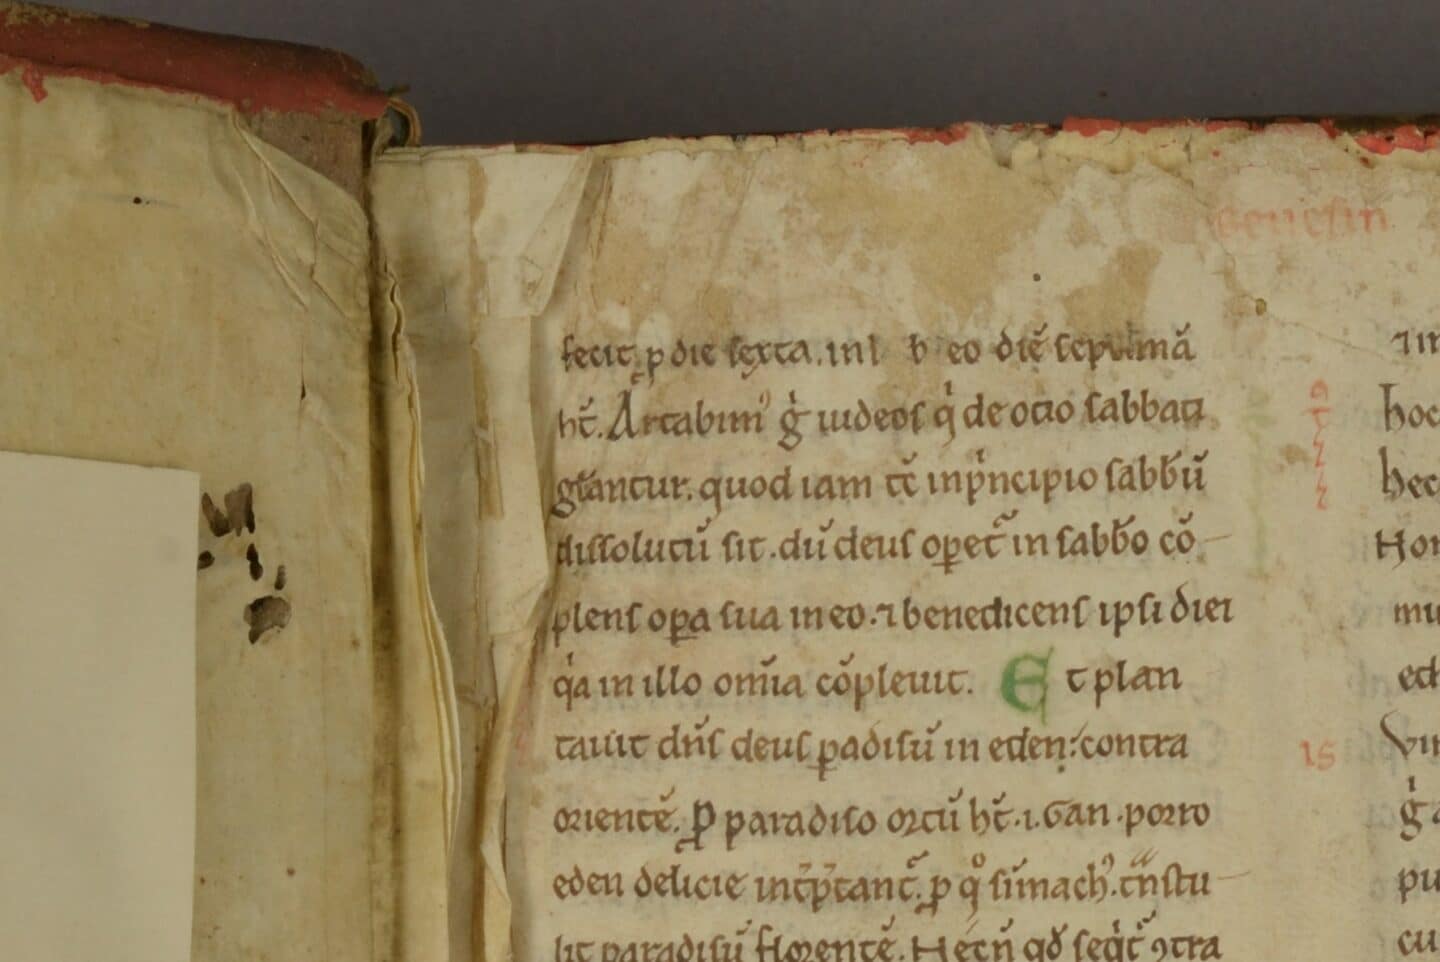 genesin
fecit. p̱ die sexta. in h̅ eo diē septimā
ht̄. Artabim᷒ gͥ iudeos qͥ de ocio sabbati
gl̄antur. quod iam tc̄ inpͥncipio sabb̄ū
dissolutū sit. dū deus oꝑet᷑ in sabb̄o cō-
plens oꝑa sua in eo. ⁊ benedicens ipsi diei
qͥa in illo om̄ia cōpleuit. Et plan
tauit dn̄s deus ꝑadisū in eden: contra
orientē. ꝓ paradiso ortū ht̄. i. Gan. porro
eden delicie int̄p̄tant᷑. ꝓ qͦ sim̄ach᷒. tͣnstu-
lit paradisū florentē. Hec̄n̄ qd̄ seqͥt᷑ ꝯtra
15
⁊ in
hoc
hec
Hor
mu
ed
Vir
pu
cu